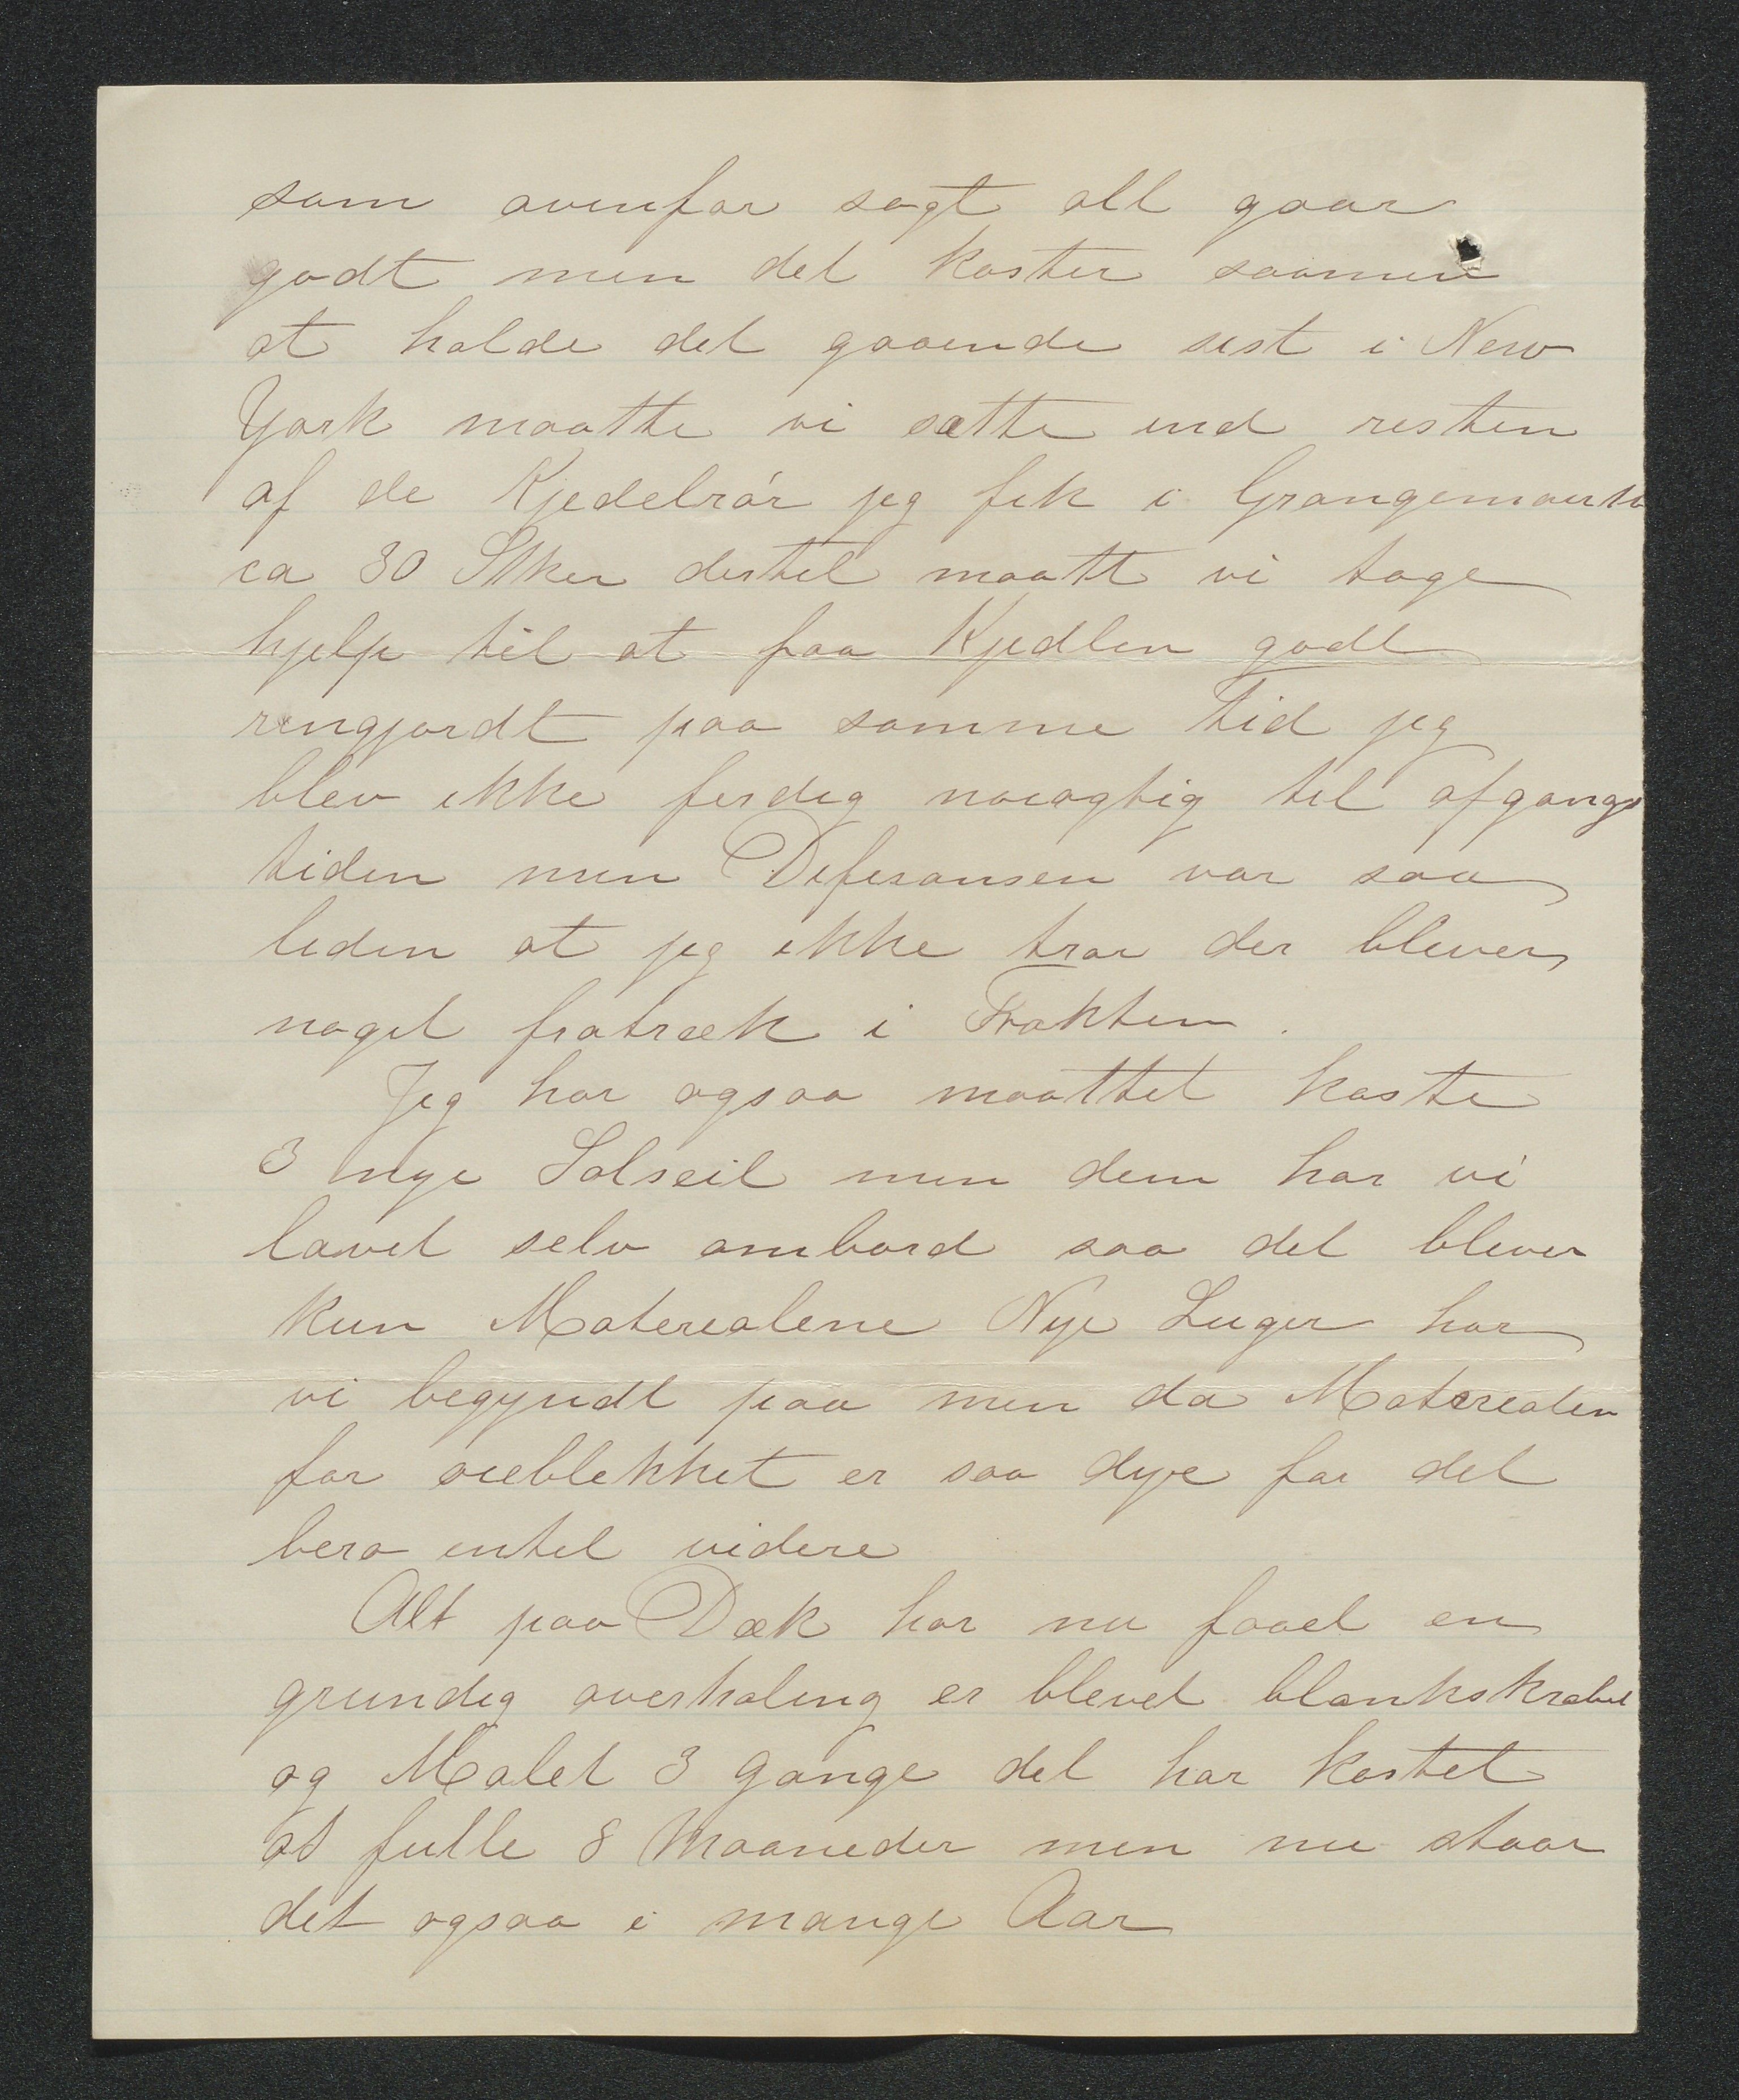 som ovenfor sagt alt gaar
godt men det koster saamen
at holde det gaaende sist i New
York maatte vi sætte ind resten
af de Kjedelrør jeg fik i Grangemouth
ca 30 Stker dertil maatte vi tage
hjelp til at faa Kjedlen godt
rengjordt paa samme Tid jeg
blev ikke ferdig nøiagtig til afgangs
tiden men Diferansen var saa
liden at jeg ikke tror der bliver
noget fratræk i Frakten.
Jeg har ogsaa maattet koste
3 nye Solseil men dem har vi
lavet selv ombord saa det bliver
kun Materialene Nye Luger har
vi begyndt paa men da Materialen
for øieblikket er saa dyre faar det
bero intil videre
Alt paa Dæk har nu faaet en
grundig overhaling er blevet blankskrabet
og Malet 3 gange det har kostet
os fulle 8 Maaneder men nu staar
det ogsaa i mange Aar